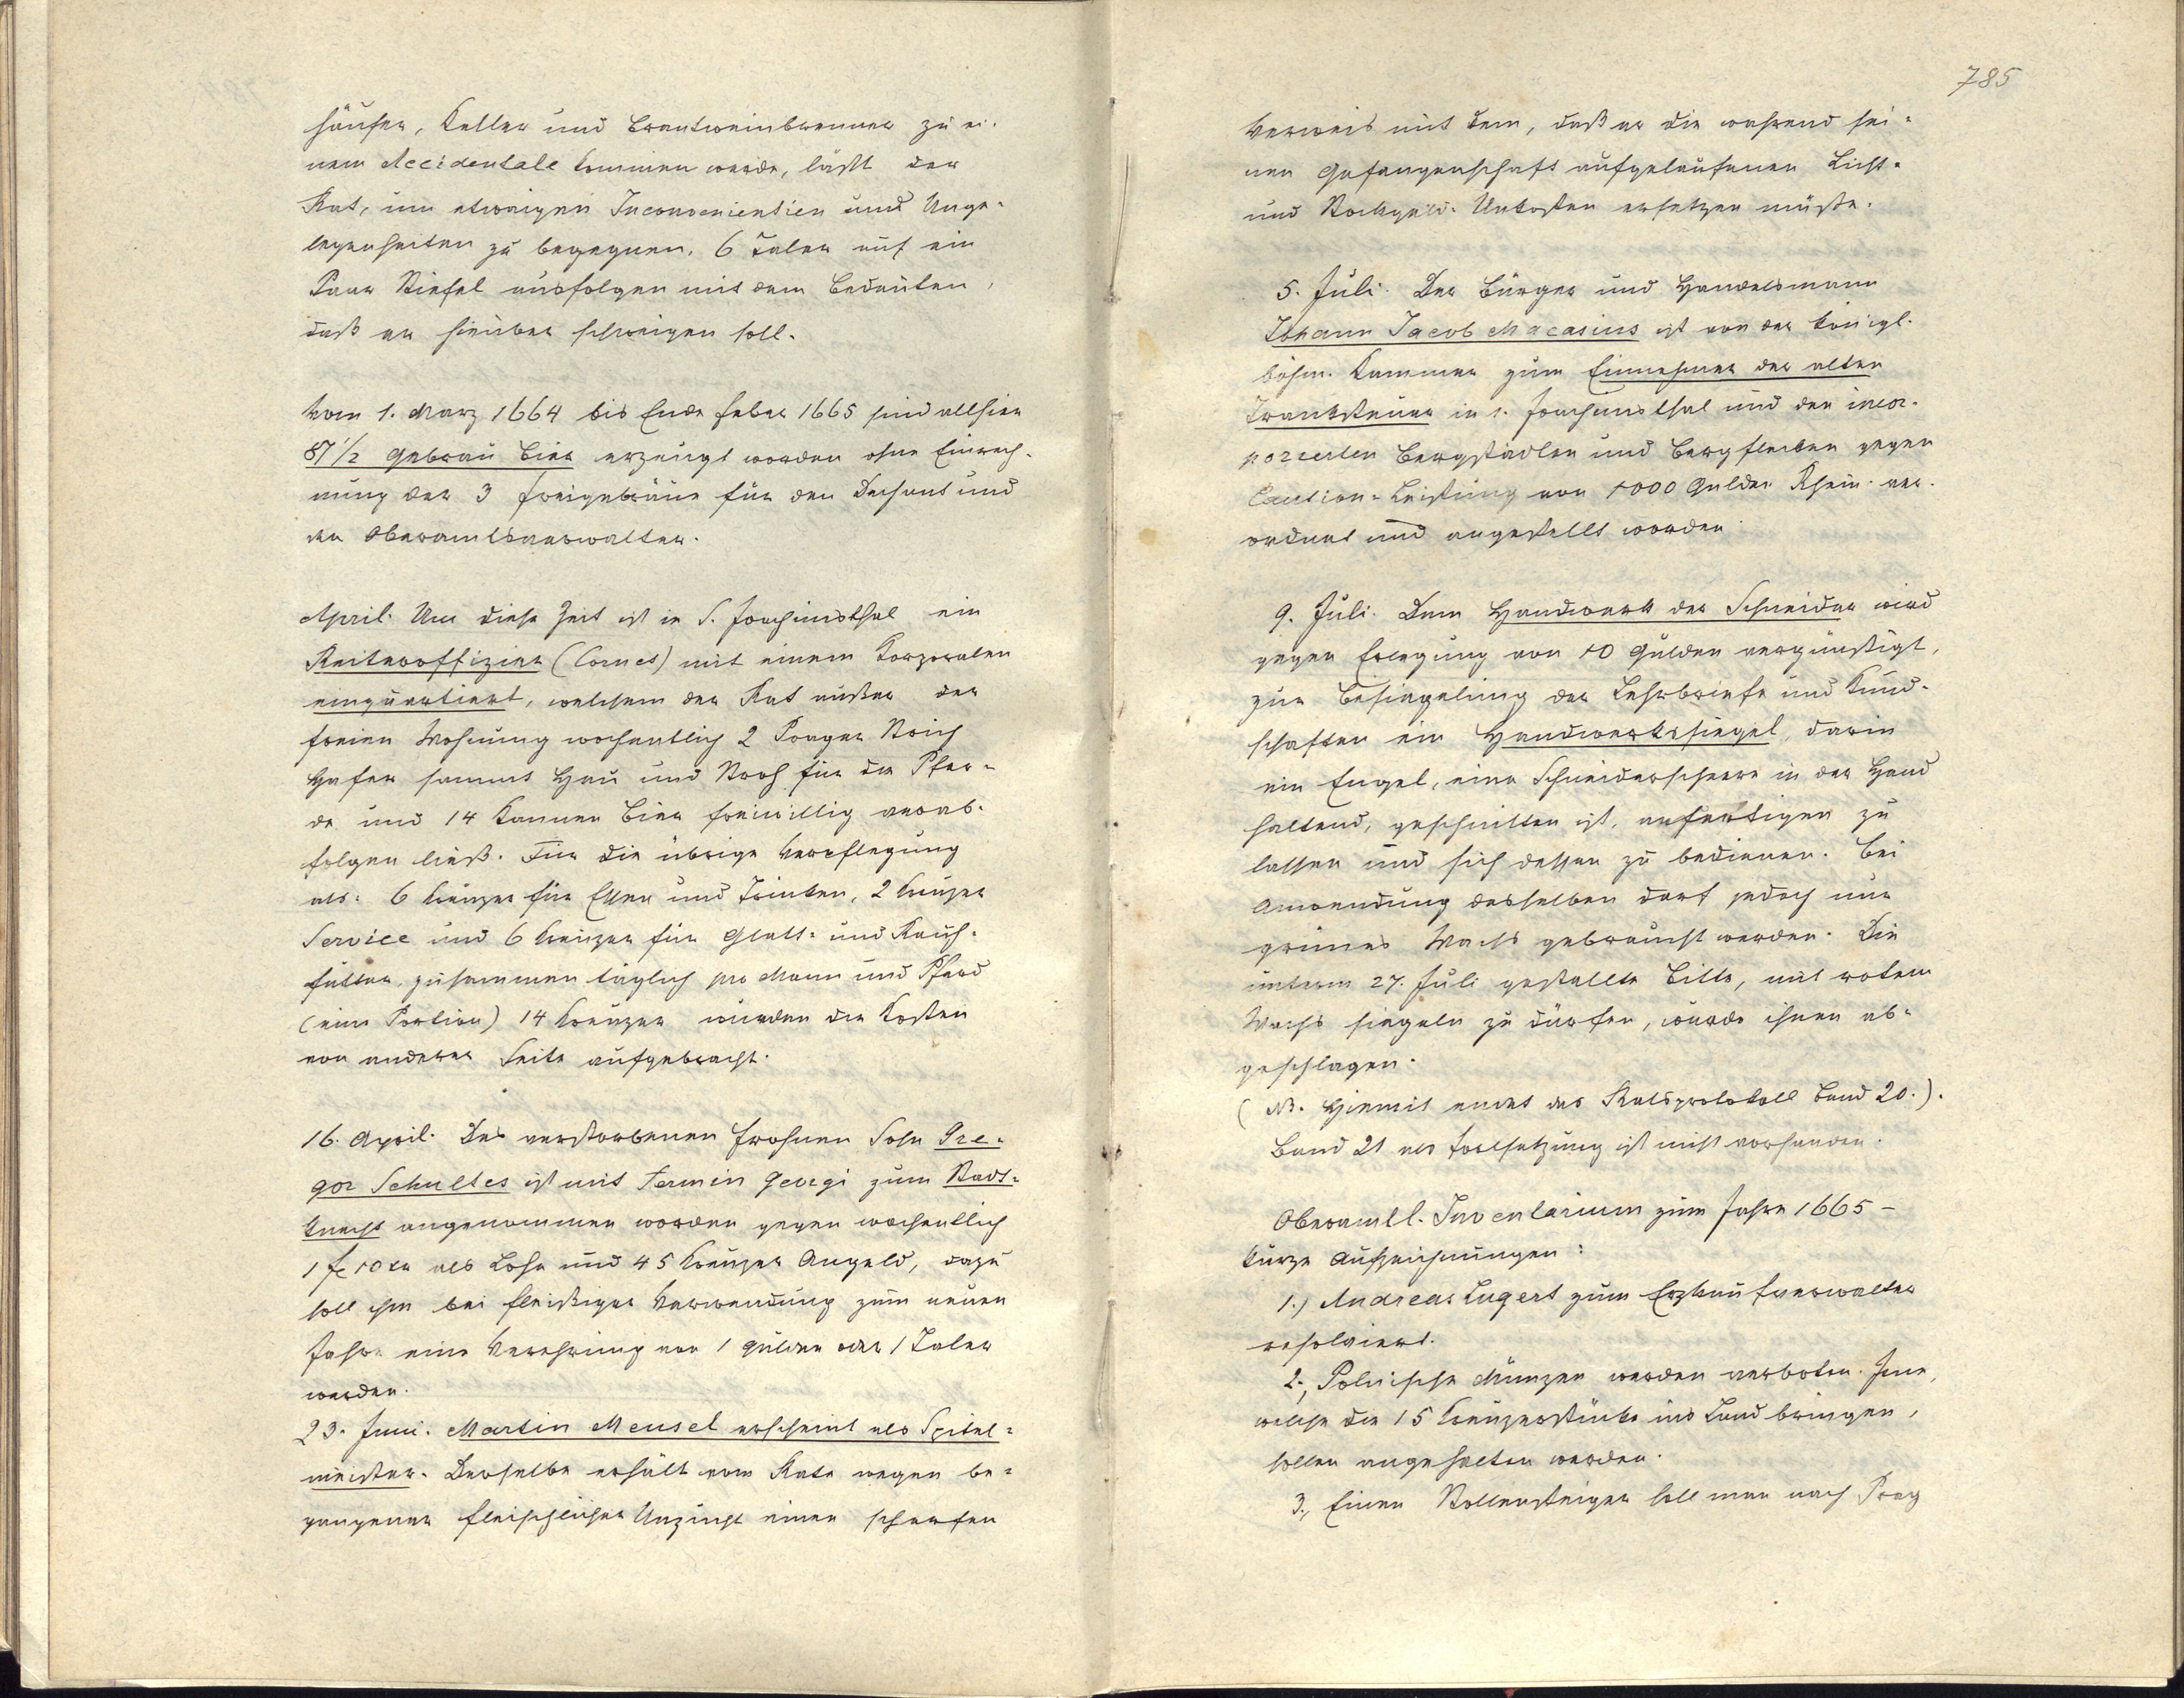 häuser, Keller und Brantweinbrenner zu ei-
nem Accidentale kommen werde, läßt der
Rat, um etwaigen Inconvenientien und Unge-
legenheiten zu begegnen, 6 Taler auf ein
Paar Stiefel ausfolgen mit dem Bedeuten,
daß er hierüber schweigen soll.
Vom 1. März 1664 bis Ende Feber 1665 sind allhier
87 1/2 Gebräu Bier erzeugt worden ohne Einrech-
nung der 3 Freigebräue für den Dechant und
den Oberamtsverwalter.
April. Um diese Zeit ist in S. Joachimsthal ein
Reiteroffizier (Cornet) mit einem Korporalen
einquartiert, welchem der Rat außer der
freien Wohnung wochentlich 2 Prager Strich
Hafer sammt Heu und Stroh für die Pfer-
de und 14 Kannen Bier freiwillig verab-
folgen ließ. Für die übrige Verpflegung
als: 6 Kreuzer für Essen und Trinken, 2 Kreuzer
Service und 6 Kreuzer für Glatt- und Rauh-
futter, zusammen täglich pro Mann und Pferd
(eine Portion) 14 Kreuzer wurden die Kosten
von anderer Seite aufgebracht.
16. April. Des verstorbenen Frohnen Sohn Gre-
gor Schultes ist mit Termin Georgi zum Stadt-
knecht angenommen worden gegen wochentlich
1 fl 10 kr als Lohn und 45 Kreuzer Angeld, dazu
soll ihm bei fleißiger Verwendung zum neuen
Jahre eine Verehrung von 1 Gulden oder 1 Taler
werden.
23. Juni. Martin Meusel erscheint als Spital-
meister. Derselbe erhält vom Rate wegen be-
gangener fleischlicher Unzucht einen scharfen
785
Verweis mit dem, daß er die während sei-
ner Gefangenschaft aufgelaufenen Licht-
und Stockgeld-Unkosten ersetzen müsse.
5. Juli. Der Bürger und Handelsmann
Johann Jacob Macasius ist von der königl.
böhm. Kammer zum Einnehmer der alten
Tranksteuer in s. Joachimsthal und den incor-
porierten Bergstädten und Bergflecken gegen
Caution-Leistung von 1000 Gulden Rhein. ver-
ordnet und angestellt worden.
9. Juli. Dem Handwerk der Schneider wird
gegen Erlegung von 10 Gulden vergünstigt,
zur Besiegelung der Lehrbriefe und Kund-
schaften ein Handwerkssiegel, darin
ein Engel, eine Schneiderscheere in der Hand
haltend, geschnitten ist, anfertigen zu
lassen und sich dessen zu bedienen. Bei
Anwendung desselben darf jedoch nur
grünes Wachs gebraucht werden. Die
unterm 27. Juli gestellte Bitte, mit rotem
Wachs siegeln zu dürfen, wurde ihnen ab-
geschlagen.
(NB. Hiemit endet das Ratsprotokoll Band 20.).
Band 21 als Fortsetzung ist nicht vorhanden.
Oberamtl. Inventarium zum Jahre 1665 –
kurze Aufzeichnungen:
1.) Andreas Lugert zum Erzkaufverwalter
resolviert.
2., Polnische Münzen werden verboten. Jene,
welche die 15 Kreuzerstücke ins Land bringen,
sollen angehalten werden.
3., Einen Stollensteiger soll man nach Prag